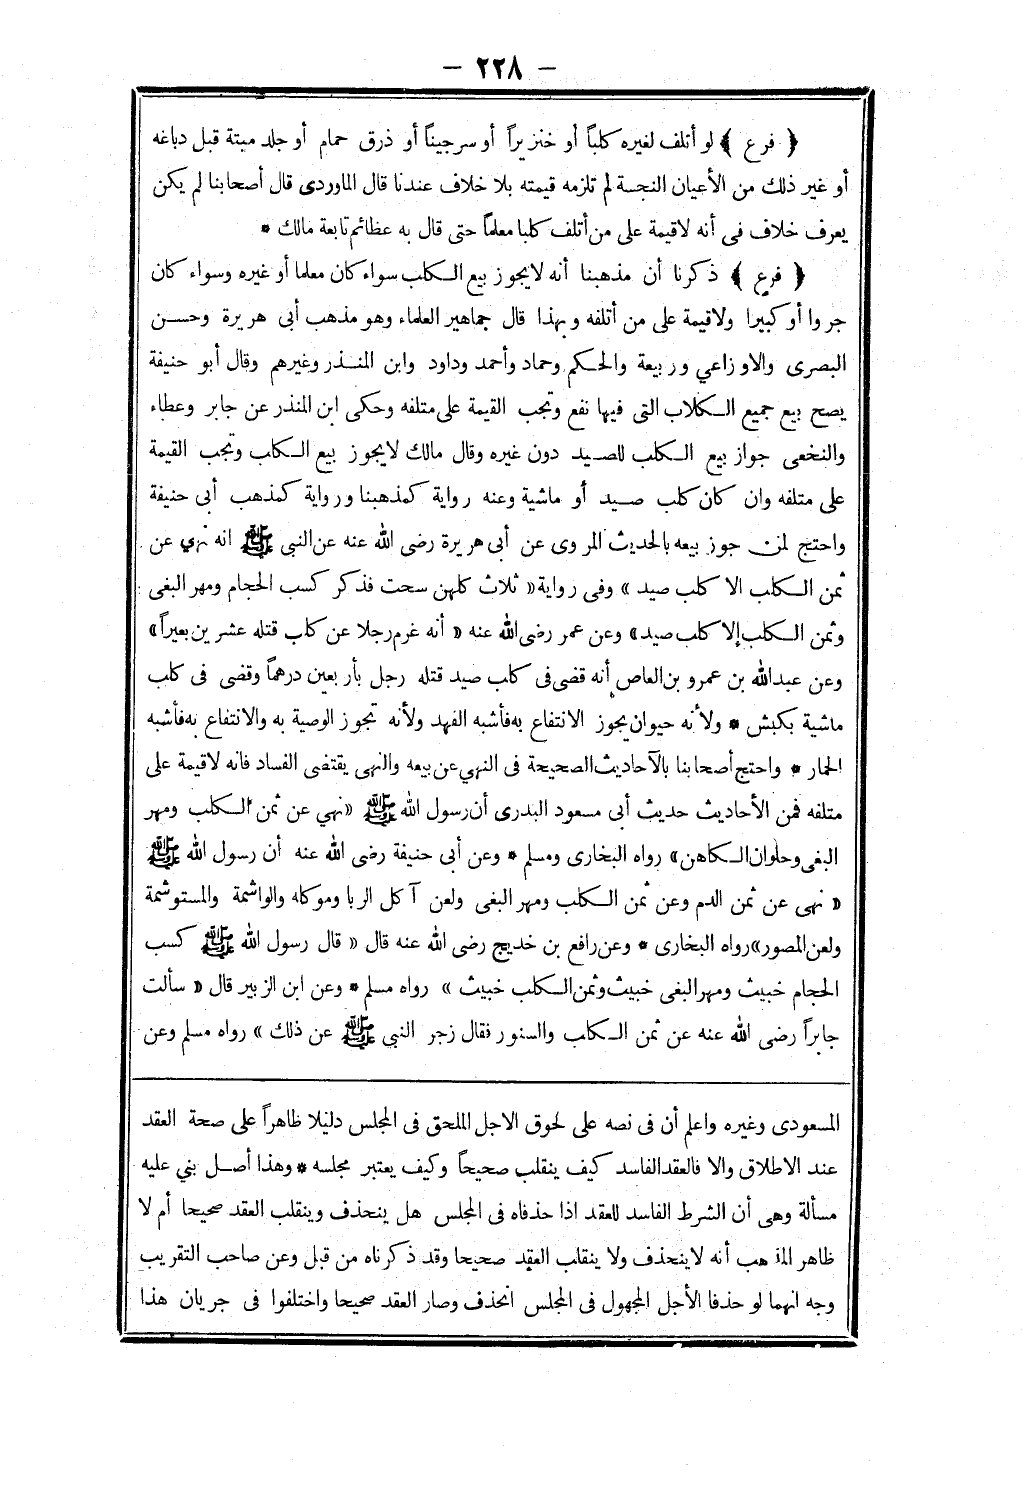 — ٢٢٨ —
﴿ فرع ﴾ لو أتلف لغيره كلباً أو خنزيراً أو سرجيناً أو ذرق حمام أو جلد ميتة قبل دباغه
أو غير ذلك من الأعيان النجسة لم تلزمه قيمته بلا خلاف عندنا قال الماوردى قال أصحابنا لم يكن
يعرف خلاف فى أنه لاقيمة على من أتلف كلبا معلماً حتى قال به عطاء ثم تابعه مالك *
﴿ فرع ﴾ ذكرنا أن مذهبنا أنه لايجوز بيع الكلب سواء كان معلما أو غيره وسواء كان
جروا أو كبيرا ولاقيمة على من أتلفه وبهذا قال جماهير العلماء وهو مذهب أبى هريرة وحسن
البصرى والاوزاعي وربيعة والحكم وحماد وأحمد وداود وابن المنذر وغيرهم وقال أبو حنيفة
يصح بيع جميع الكلاب التى فيها نفع وتجب القيمة على متلفه وحكى ابن المنذر عن جابر وعطاء
والنخعى جواز بيع الكلب للصيد دون غيره وقال مالك لايجوز بيع الكلب وتجب القيمة
على متلفه وان كان كلب صيد أو ماشية وعنه رواية كمذهبنا ورواية كمذهب أبى حنيفة
واحتج لمن جوز بيعه بالحديث المروى عن أبى هريرة رضى الله عنه عن النبى ﷺ انه نهي عن
ثمن الكلب الا كلب صيد » وفى رواية « ثلاث كلهن سحت فذكر كسب الحجام ومهر البغى
وثمن الكلب إلا كلب صيد » وعن عمر رضى الله عنه « أنه غرم رجلا عن كلب قتله عشرين بعيراً »
وعن عبدالله بن عمرو بن العاص أنه قضى فى كلب صيد قتله رجل بأربعين درهماً وقضى فى كلب
ماشية بكبش * ولأنه حيوان يجوز الانتفاع به فأشبه الفهد ولأنه تجوز الوصية به والانتفاع به فأشبه
الحمار * واحتج أصحابنا بالآحاديث الصحيحة فى النهي عن بيعه والنهى يقتضى الفساد فانه لاقيمة على
متلفه فمن الأحاديث حديث أبى مسعود البدرى أن رسول الله ﷺ « نهي عن ثمن الكلب ومهر
البغى وحلوان الكاهن » رواه البخارى ومسلم * وعن أبى حنيفة رضى الله عنه أن رسول الله ﷺ
« نهى عن ثمن الدم وعن ثمن الكلب ومهر البغى ولعن آكل الربا وموكله والواشمة والمستوشمة
ولعن المصور » رواه البخارى * وعن رافع بن خديج رضى الله عنه قال « قال رسول الله ﷺ كسب
الحجام خبيث ومهر البغى خبيث وثمن الكلب خبيث » رواه مسلم * وعن ابن الزبير قال « سألت
جابراً رضى الله عنه عن ثمن الكلب والسنور نقال زجر النبي ﷺ عن ذلك » رواه مسلم وعن
المسعودى وغيره واعلم أن فى نصه على لحوق الاجل الملحق فى المجلس دليلا ظاهراً على صحة العقد
عند الاطلاق والا فالعقد الفاسد كيف ينقلب صحيحاً وكيف يعتبر مجلسه * وهذا أصل بني عليه
مسألة وهى أن الشرط الفاسد للعقد اذا حذفاه فى المجلس هل ينحذف وينقلب العقد صحيحا أم لا
ظاهر المذهب أنه لاينحذف ولا ينقلب العقد صحيحا وقد ذكرناه من قبل وعن صاحب التقريب
وجه انهما لو حذفا الأجل المجهول فى المجلس انحذف وصار العقد صحيحا واختلفوا فى جريان هذا